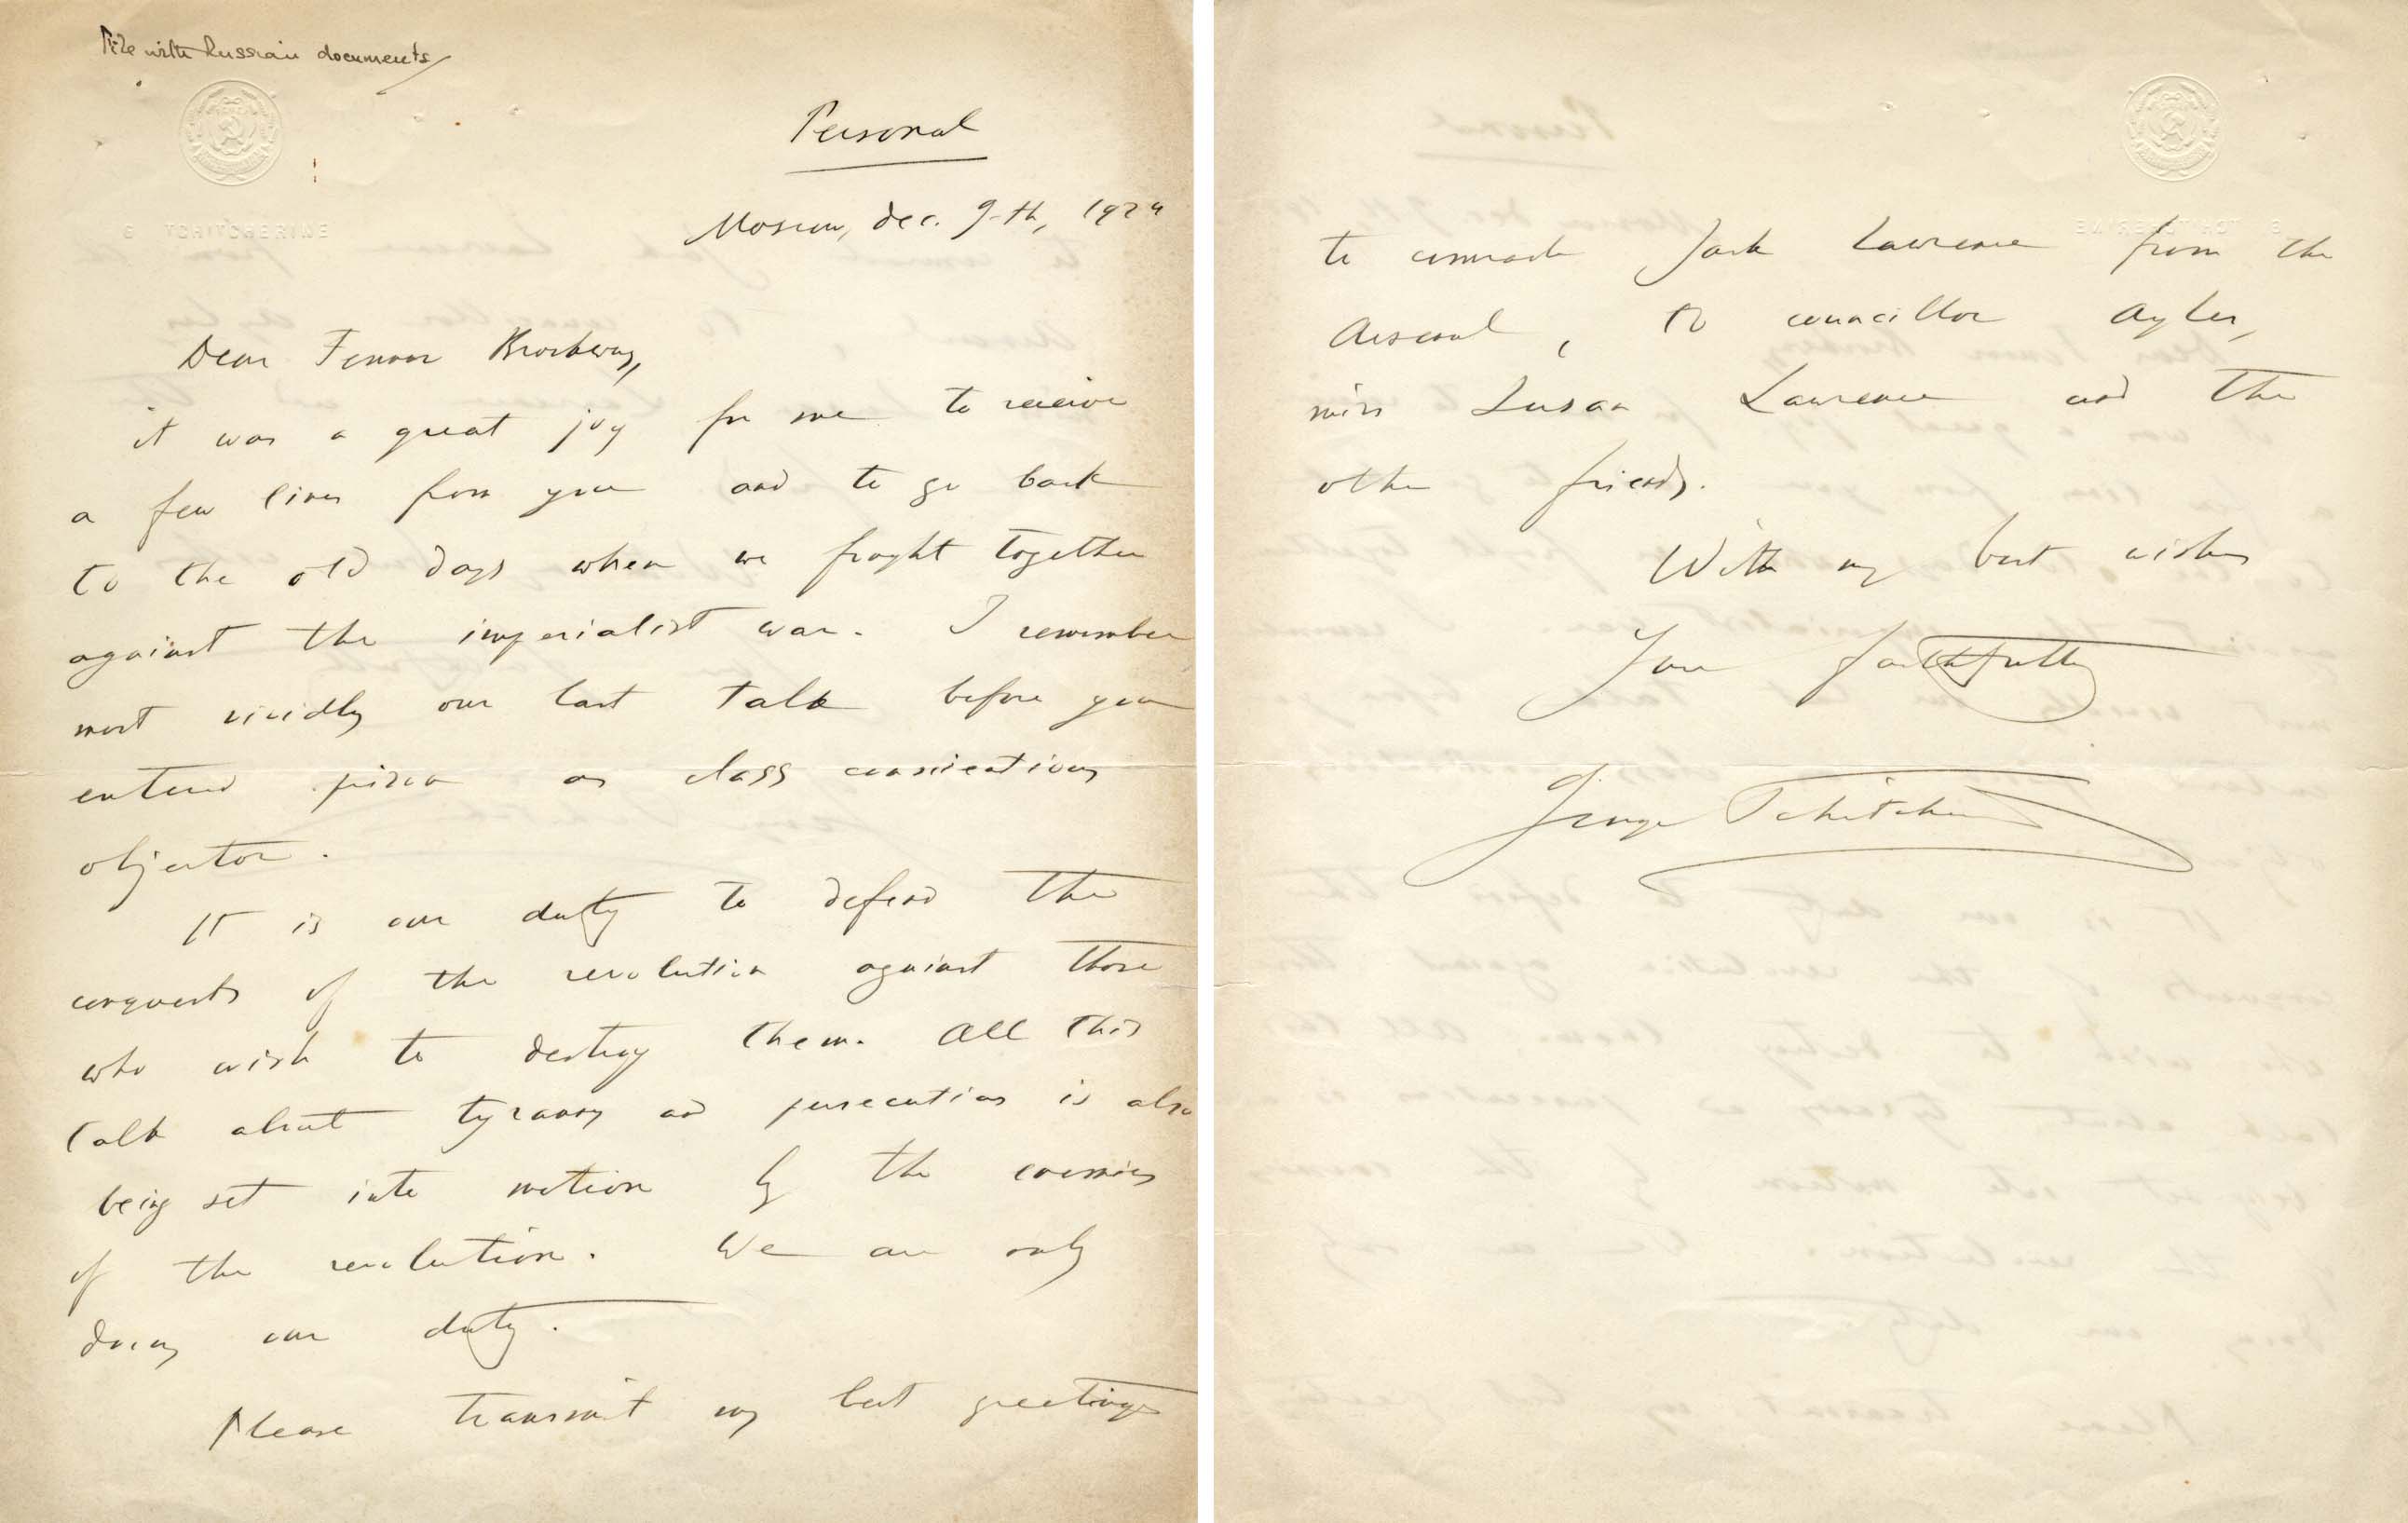 File with Russian documents
Personal
G TCHITCHERINE
Moscow, dec. 9-th, 1924
Dear Fenner Brockway,
it was a great joy for me to receive
a few lines from you and to go back
to the old days when we fought together
against the imperialist war. I remember
most vividly our last talk before you
entered prison as class conscientious
objector.
It is our duty to defend the
conquests of the revolution against those
who wish to destroy them. All this
talk about tyranny and persecutions is also
being set into motion by the enemies
of the revolution. We are only
doing our duty.
Please transmit my best greetings
to comrade Jack Lawrence from the
Arsenal, to councillor
miss Susan Lawrence and the
other friends.
With my best wishes
Yours faithfully
George Tchitcherine